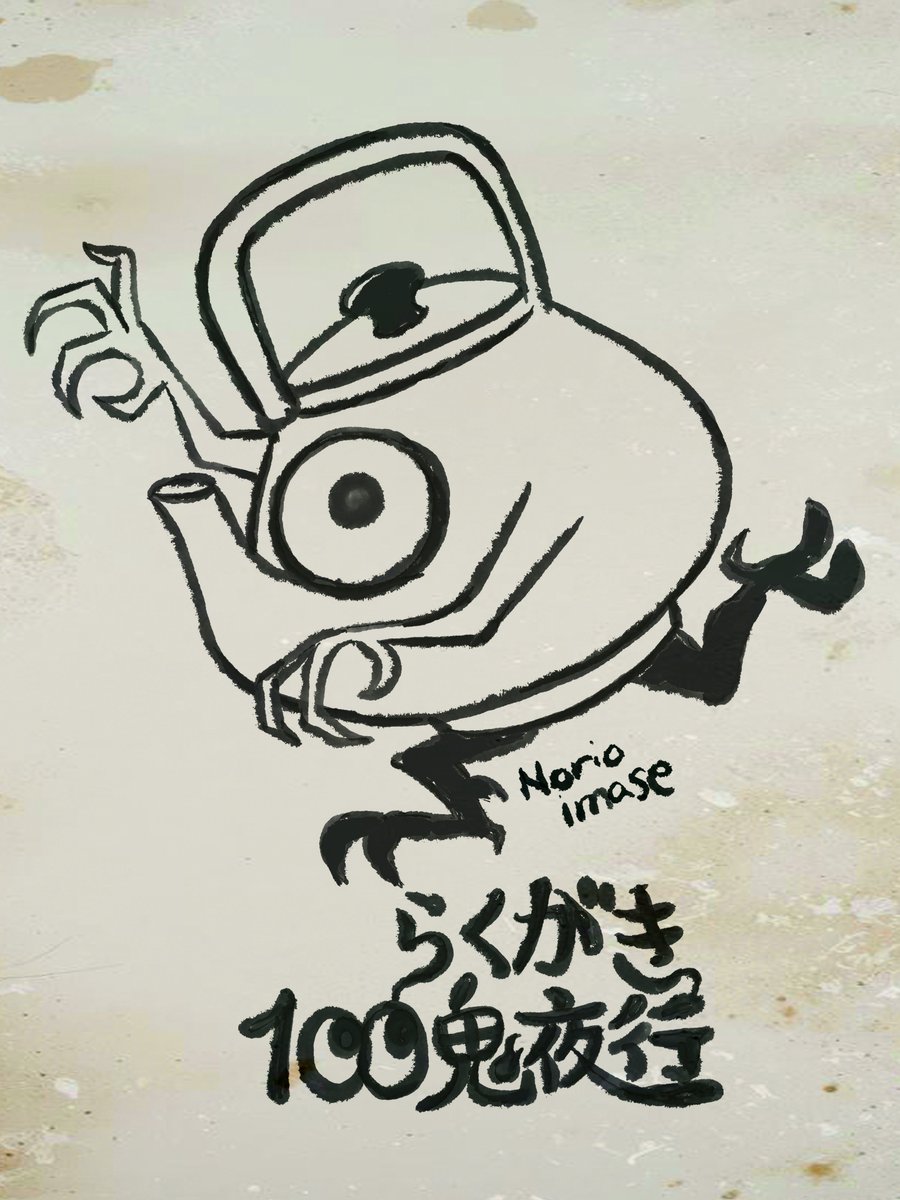 Norio
imase
らくがき
100鬼夜行